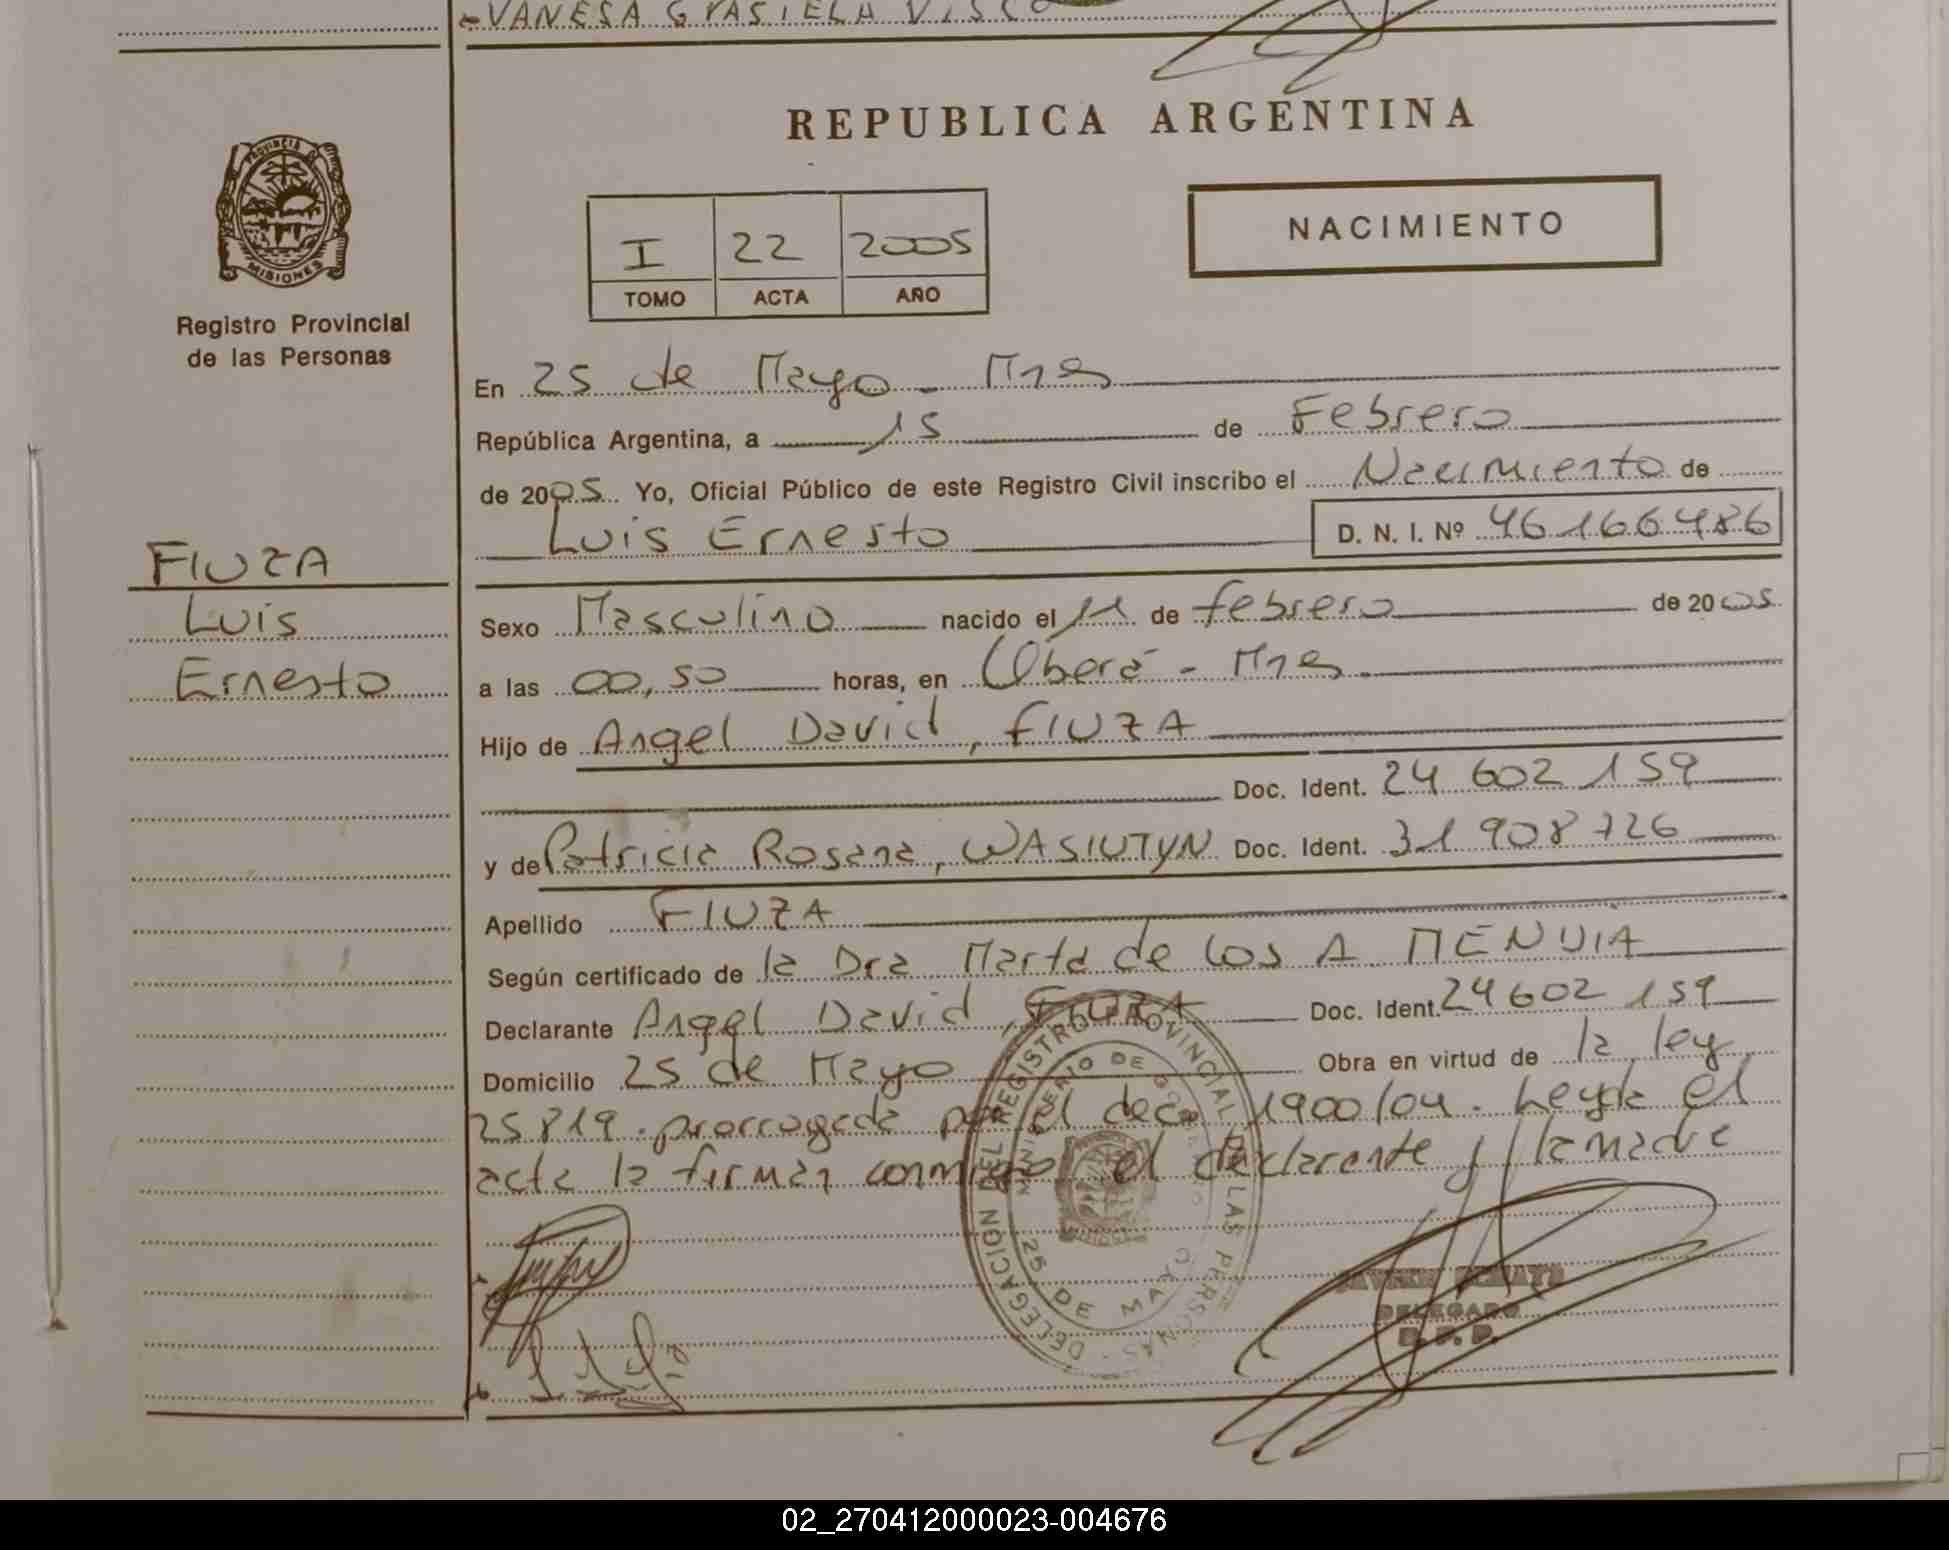 VANESA GRASIELA VISCO
PROVINCIA D
MISIONES
Registro Provincial
de las Personas
REPUBLICA ARGENTINA
I 22 2005
TOMO ACTA AÑO
NACIMIENTO
En 25 de Mayo - Mnes
República Argentina, a 15 de Febrero
de 2005 Yo, Oficial Público de este Registro Civil inscribo el Nacimiento de
Luis Ernesto D. N. I. Nº 46.166.486
FIUZA
Luis
Ernesto
Sexo Masculino nacido el 11 de febrero de 2005
a las 00,50 horas, en Oberá - Mnes
Hijo de Angel David, FIUZA
Doc. Ident. 24 602 159
y de Patricia Rosana, WASIUTYN Doc. Ident. 31 908 726
Apellido FIUZA
Según certificado de la Dra Marta de los A
Declarante Angel David, FIUZA Doc. Ident. 24 602 159
Domicilio 25 de Mayo Obra en virtud de la ley
25819 prorrogada por el deco 1900/04. Leyda el
acta la firman conmigo el declarante y la madre
DELEGACION DEL REGISTRO PROVINCIAL DE LAS PERSONAS
MINISTERIO DE GOBIERNO
25 DE MAYO
DELEGADO
02_270412000023-004676